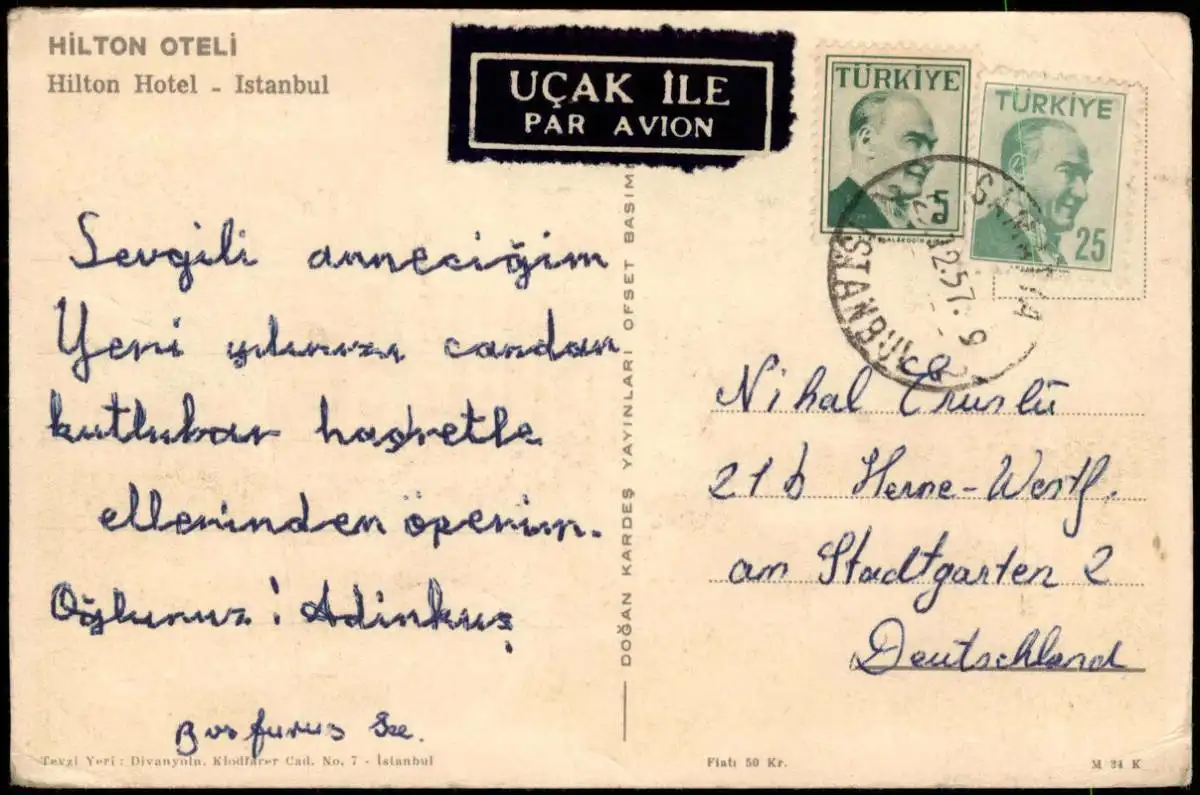 HİLTON OTELİ
Hilton Hotel - Istanbul
UÇAK İLE
PAR AVION
TÜRKİYE
5
TÜRKİYE
25
İSTANBUL
2.57.9
Sevgili anneciğim
Yeni yılınızı candan
kutlular hasretle
ellerinden öperim.
Oğlunuz!
DOĞAN KARDEŞ YAYINLARI OFSET BASIM
Nihal
21b Herne-Westf.
am Stadtgarten 2
Deutschland
Tevzi Yeri: Divanyolu, Klodfarer Cad. No. 7 - İstanbul
Fiatı 50 Kr.
M 24 K